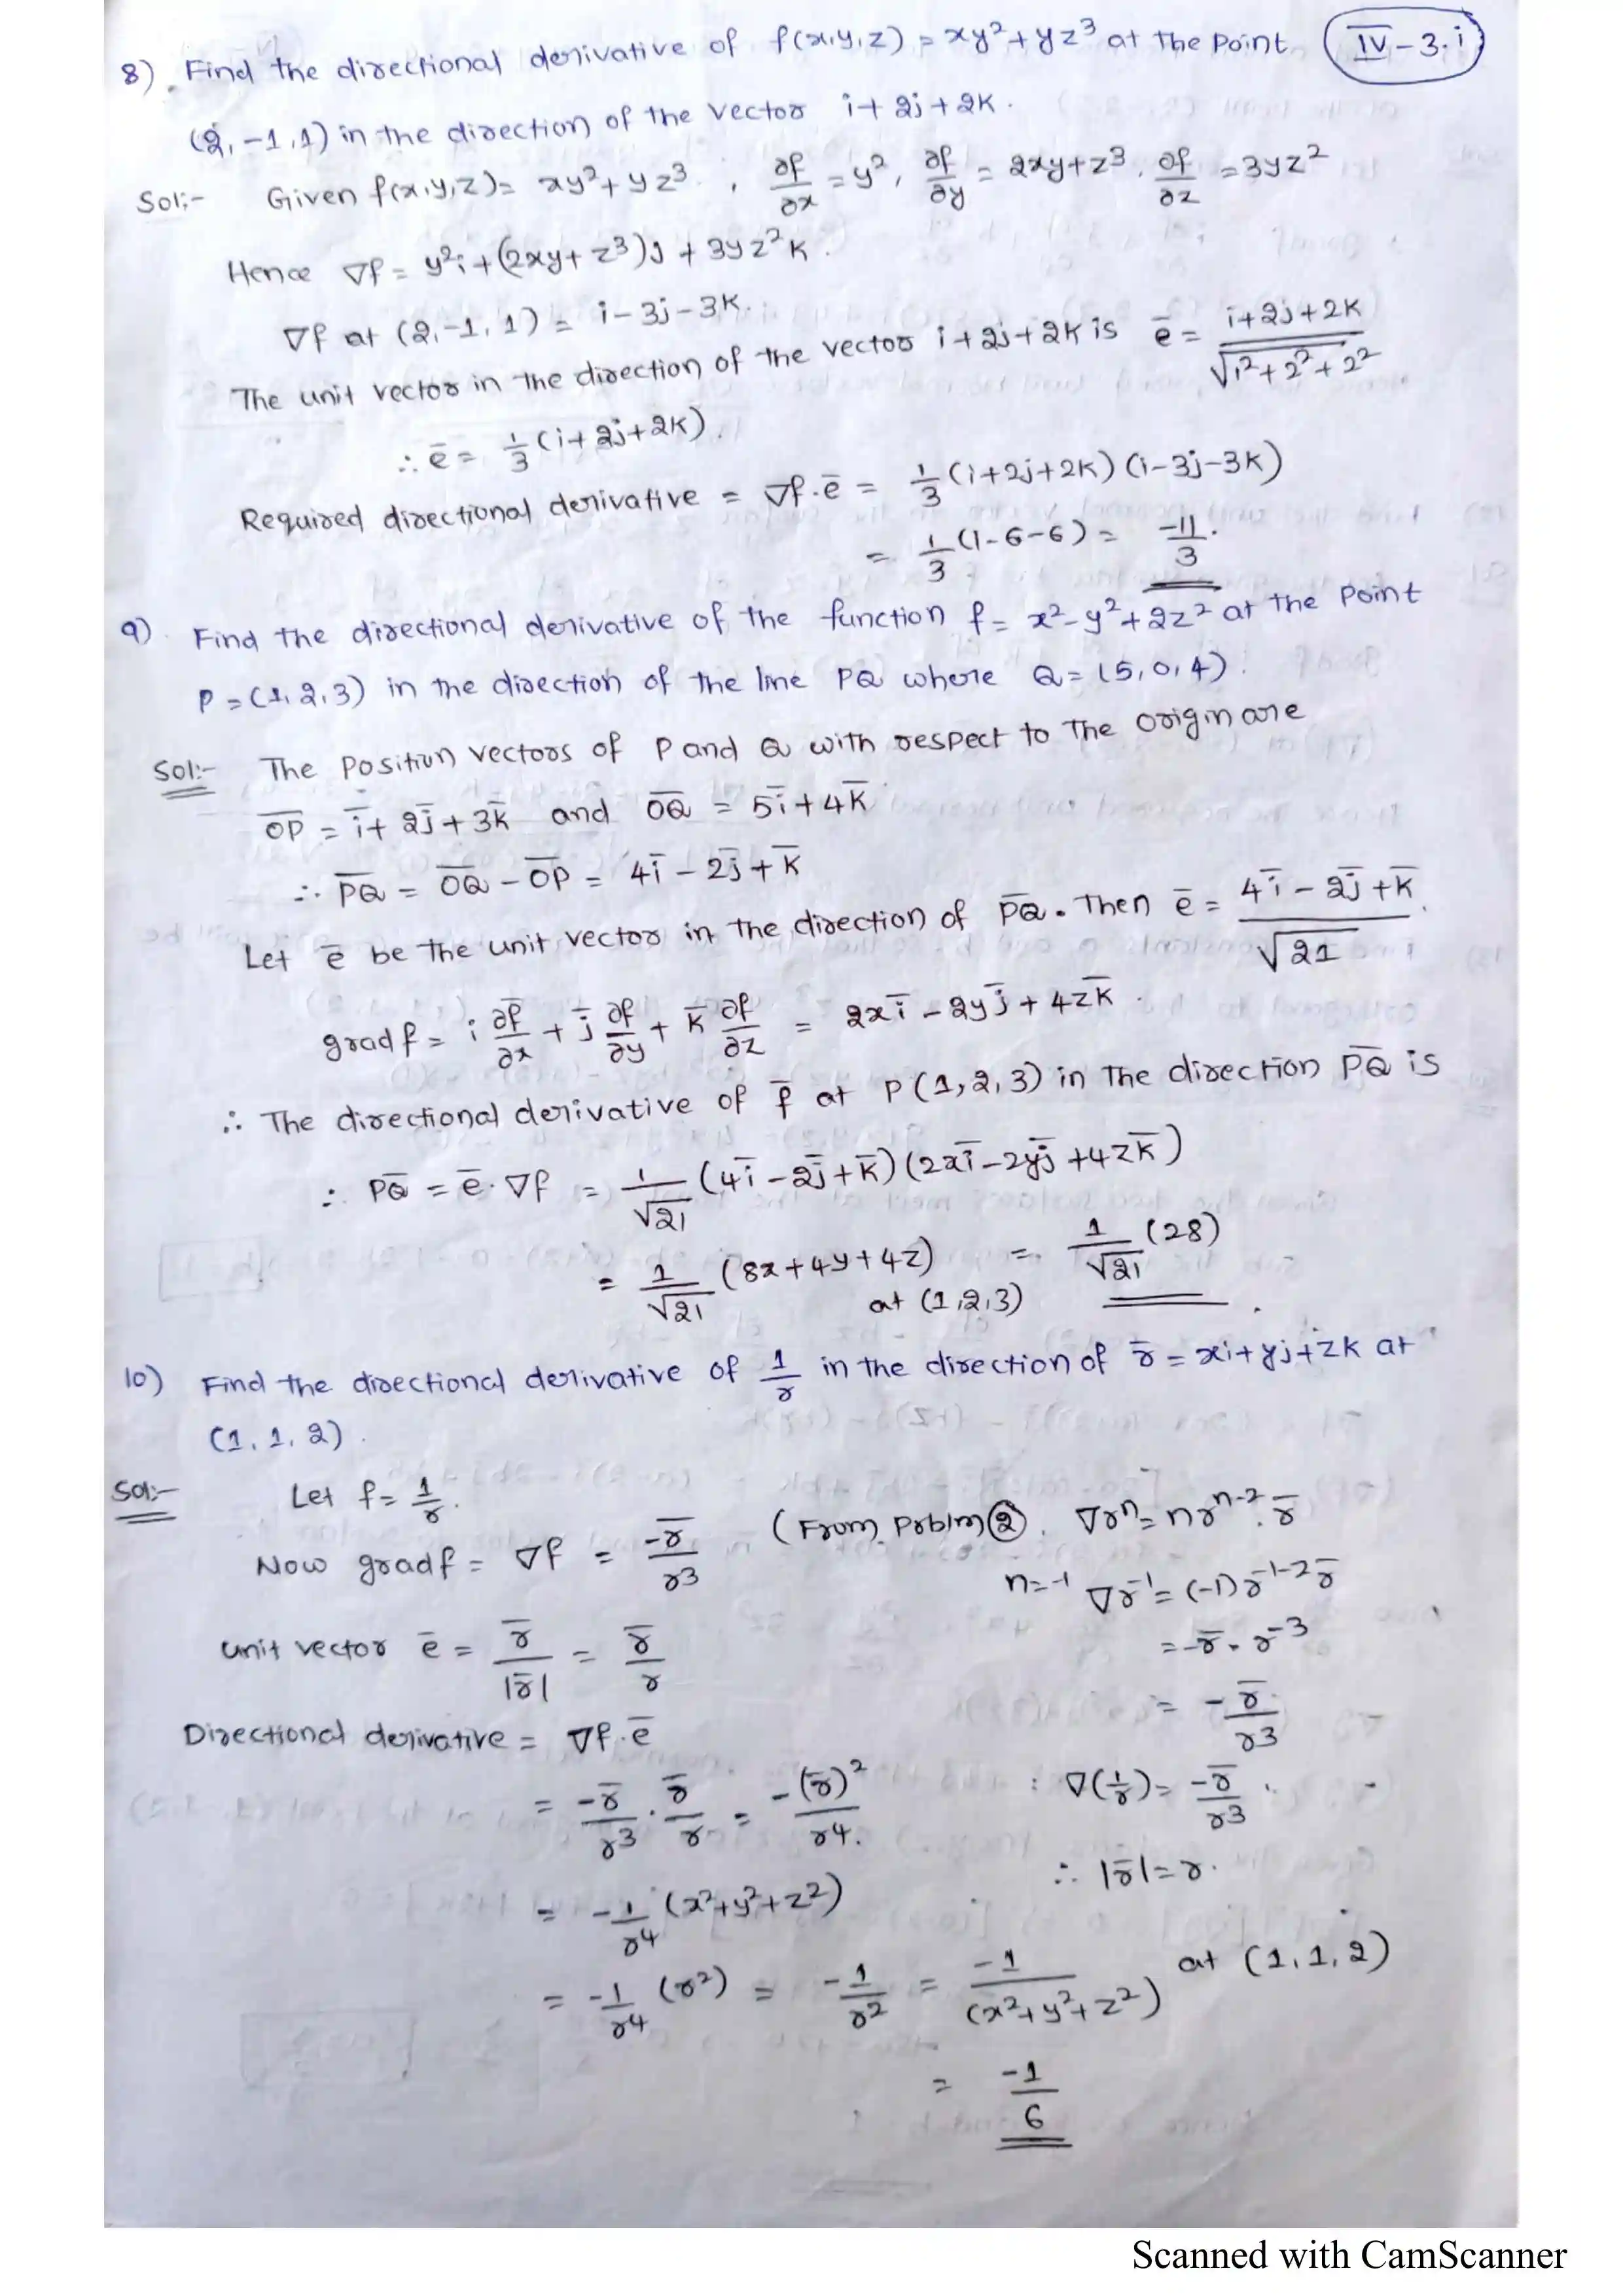 8) Find the directional derivative of f(x,y,z) = xy² + yz³ at the point IV-3.i
(2,-1,1) in the direction of the vector i+2j+2k.
Sol:- Given f(x,y,z) = xy²+yz³ , ∂f/∂x = y², ∂f/∂y = 2xy+z³, ∂f/∂z = 3yz²
Hence ∇f = y²i+(2xy+z³)j+3yz²k.
∇f at (2,-1,1) = i-3j-3k.
The unit vector in the direction of the vector i+2j+2k is e̅ = (i+2j+2k)/√(1²+2²+2²)
∴ e̅ = 1/3 (i+2j+2k).
Required directional derivative = ∇f.e̅ = 1/3 (i+2j+2k) (i-3j-3k)
= 1/3 (1-6-6) = -11/3.
9) Find the directional derivative of the function f = x²-y²+2z² at the point
P = (1,2,3) in the direction of the line PQ where Q = (5,0,4).
Sol:- The position vectors of P and Q with respect to the origin are
O̅P̅ = i̅+2j̅+3k̅ and O̅Q̅ = 5i̅+4k̅
∴ P̅Q̅ = O̅Q̅ - O̅P̅ = 4i̅-2j̅+k̅
Let e̅ be the unit vector in the direction of P̅Q̅. Then e̅ = (4i̅-2j̅+k̅)/√21.
grad f = i̅ ∂f/∂x + j̅ ∂f/∂y + k̅ ∂f/∂z = 2xi̅-2yj̅+4zk̅.
∴ The directional derivative of f̅ at P(1,2,3) in the direction P̅Q̅ is
∴ P̅Q̅ = e̅.∇f = 1/√21 (4i̅-2j̅+k̅)(2xi̅-2yj̅+4zk̅)
= 1/√21 (8x+4y+4z) at (1,2,3) = 1/√21 (28).
10) Find the directional derivative of 1/r in the direction of r̅ = xi+yj+zk at
(1,1,2).
Sol:- Let f = 1/r.
Now grad f = ∇f = -r̅/r3 (From Problm ②. ∇rⁿ = nrⁿ⁻².r̅
n=-1 ∇r⁻¹ = (-1)r⁻¹⁻²r̅
unit vector e̅ = r̅/|r̅| = r̅/r
= -r̅.r⁻³
= -r̅/r3
Directional derivative = ∇f.e̅
= -r̅/r3 . r̅/r = -(r̅)²/r4.
: ∇(1/r) = -r̅/r3.
∴ |r̅| = r.
= -1/r4 (x²+y²+z²)
= -1/r4 (r²) = -1/r2 = -1/(x²+y²+z²) at (1,1,2)
= -1/6
Scanned with CamScanner